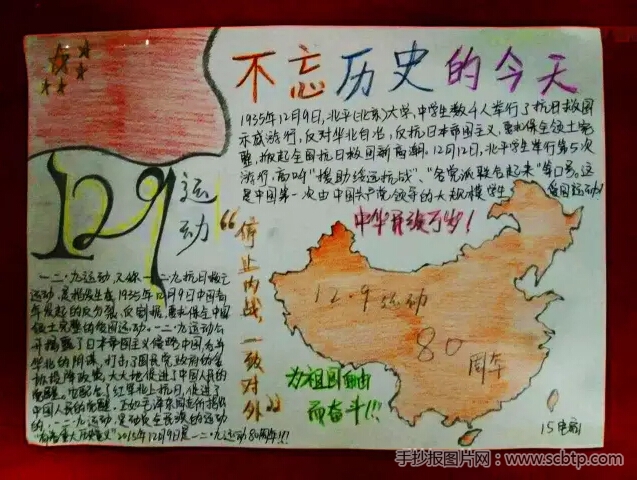 不忘历史的今天
1935年12月9日,北平(北京)大学,中学生数千人举行了抗日救国
示威游行,反对华北自治,反抗日本帝国主义,要求保全领土完
整,掀起全国抗日救国新高潮。12月12日,北平学生举行第5次
游行,高呼"援助绥远抗战"、"各党派联合起来"等口号。这
是中国第一次由中国共产党领导的大规模学生爱国运动!
129
运动
"停止内战,一致对外"
中华民族万岁!
12.9运动
80
周年
为祖国自由
而奋斗!!!
15电商1
一二·九运动,又称一二·九抗日救亡
运动,是指发生在1935年12月9日中国
要求保全中国
领土完整的爱国运动。一二·九运动公
开揭露了日本帝国主义侵略中国,
华北的阴谋,打击了国民党政府的妥
协投降政策,大大地促进了中国人民的
觉醒。它配合了红军北上抗日,促进了
中国人民的觉醒,
的,一二·九运动
2015年12月9日是一二·九运动80周年!!!
手抄报图片网:www.scbtp.com